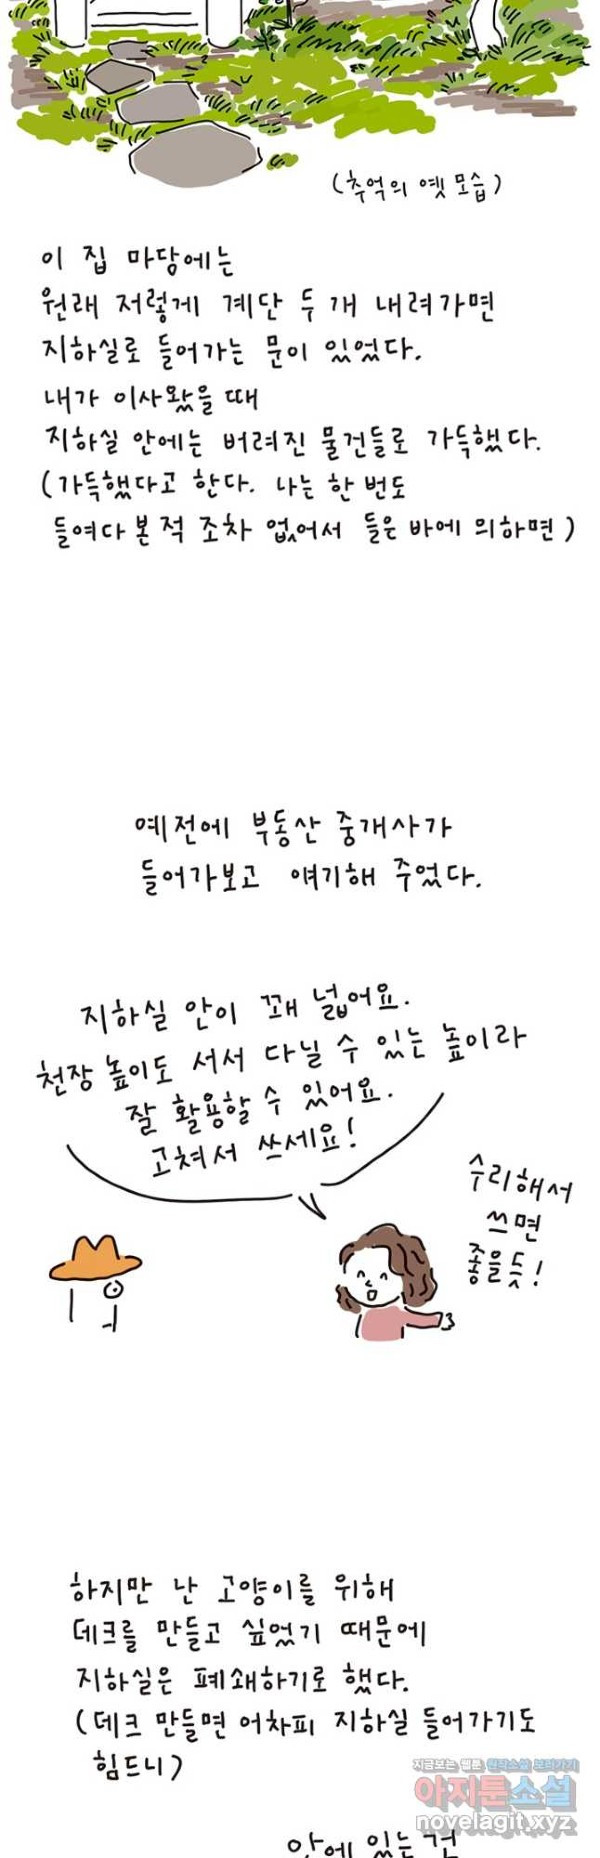 (추억의 옛 모습)
이 집 마당에는
원래 저렇게 계단 두 개 내려가면
지하실로 들어가는 문이 있었다.
내가 이사왔을 때
지하실 안에는 버려진 물건들로 가득했다.
(가득했다고 한다. 나는 한 번도
들여다 본 적 조차 없어서 들은 바에 의하면)
예전에 부동산 중개사가
들어가보고 얘기해 주었다.
지하실 안이 꽤 넓어요.
천장 높이도 서서 다닐 수 있는 높이라
잘 활용할 수 있어요.
고쳐서 쓰세요!
수리해서
쓰면
좋을 듯!
하지만 난 고양이를 위해
데크를 만들고 싶었기 때문에
지하실은 폐쇄하기로 했다.
(데크 만들면 어차피 지하실 들어가기도
힘드니)
지금보는 웹툰 원작소설 보러가기
아지툰소설
novelagit.xyz
안에 있는 건